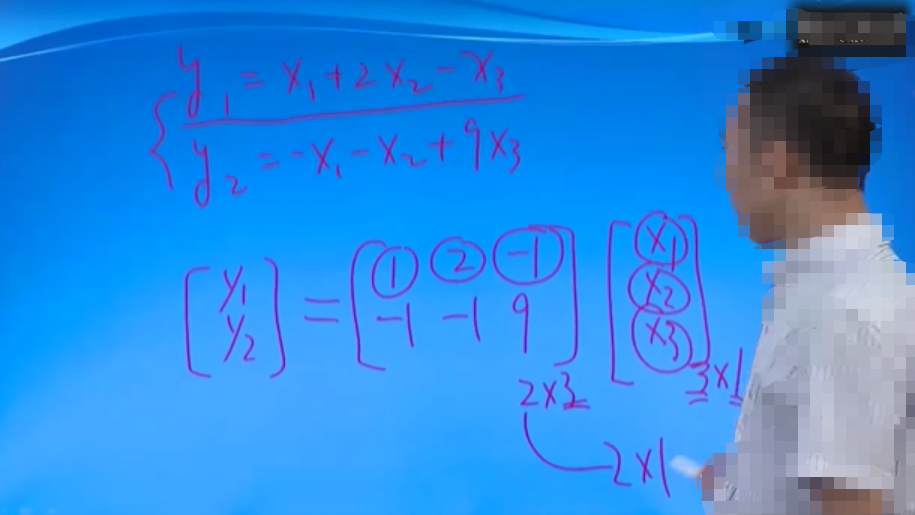 y₁ = x₁ + 2x₂ - x₃
y₂ = -x₁ - x₂ + 9x₃
[y₁ y₂] = [1 2 -1
-1 -1 9] [x₁ x₂ x₃]
2×3 3×1
2×1